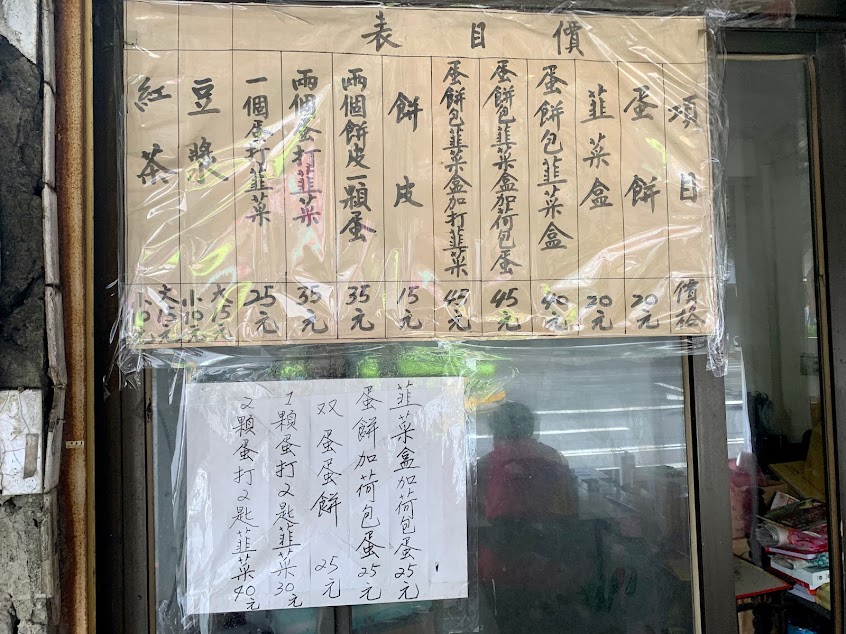 價目表
項目 價格
蛋餅 20元
韮菜盒 20元
蛋餅包韮菜盒 40元
蛋餅包韮菜盒加荷包蛋 45元
蛋餅包韮菜盒加打韮菜 45元
餅皮 15元
兩個餅皮一顆蛋 35元
兩個蛋打韮菜 35元
一個蛋打韮菜 25元
豆漿 大15元 小10元
紅茶 大15元 小10元
韮菜盒加荷包蛋25元
蛋餅加荷包蛋25元
双蛋蛋餅 25元
1顆蛋打2匙韮菜30元
2顆蛋打2匙韮菜40元